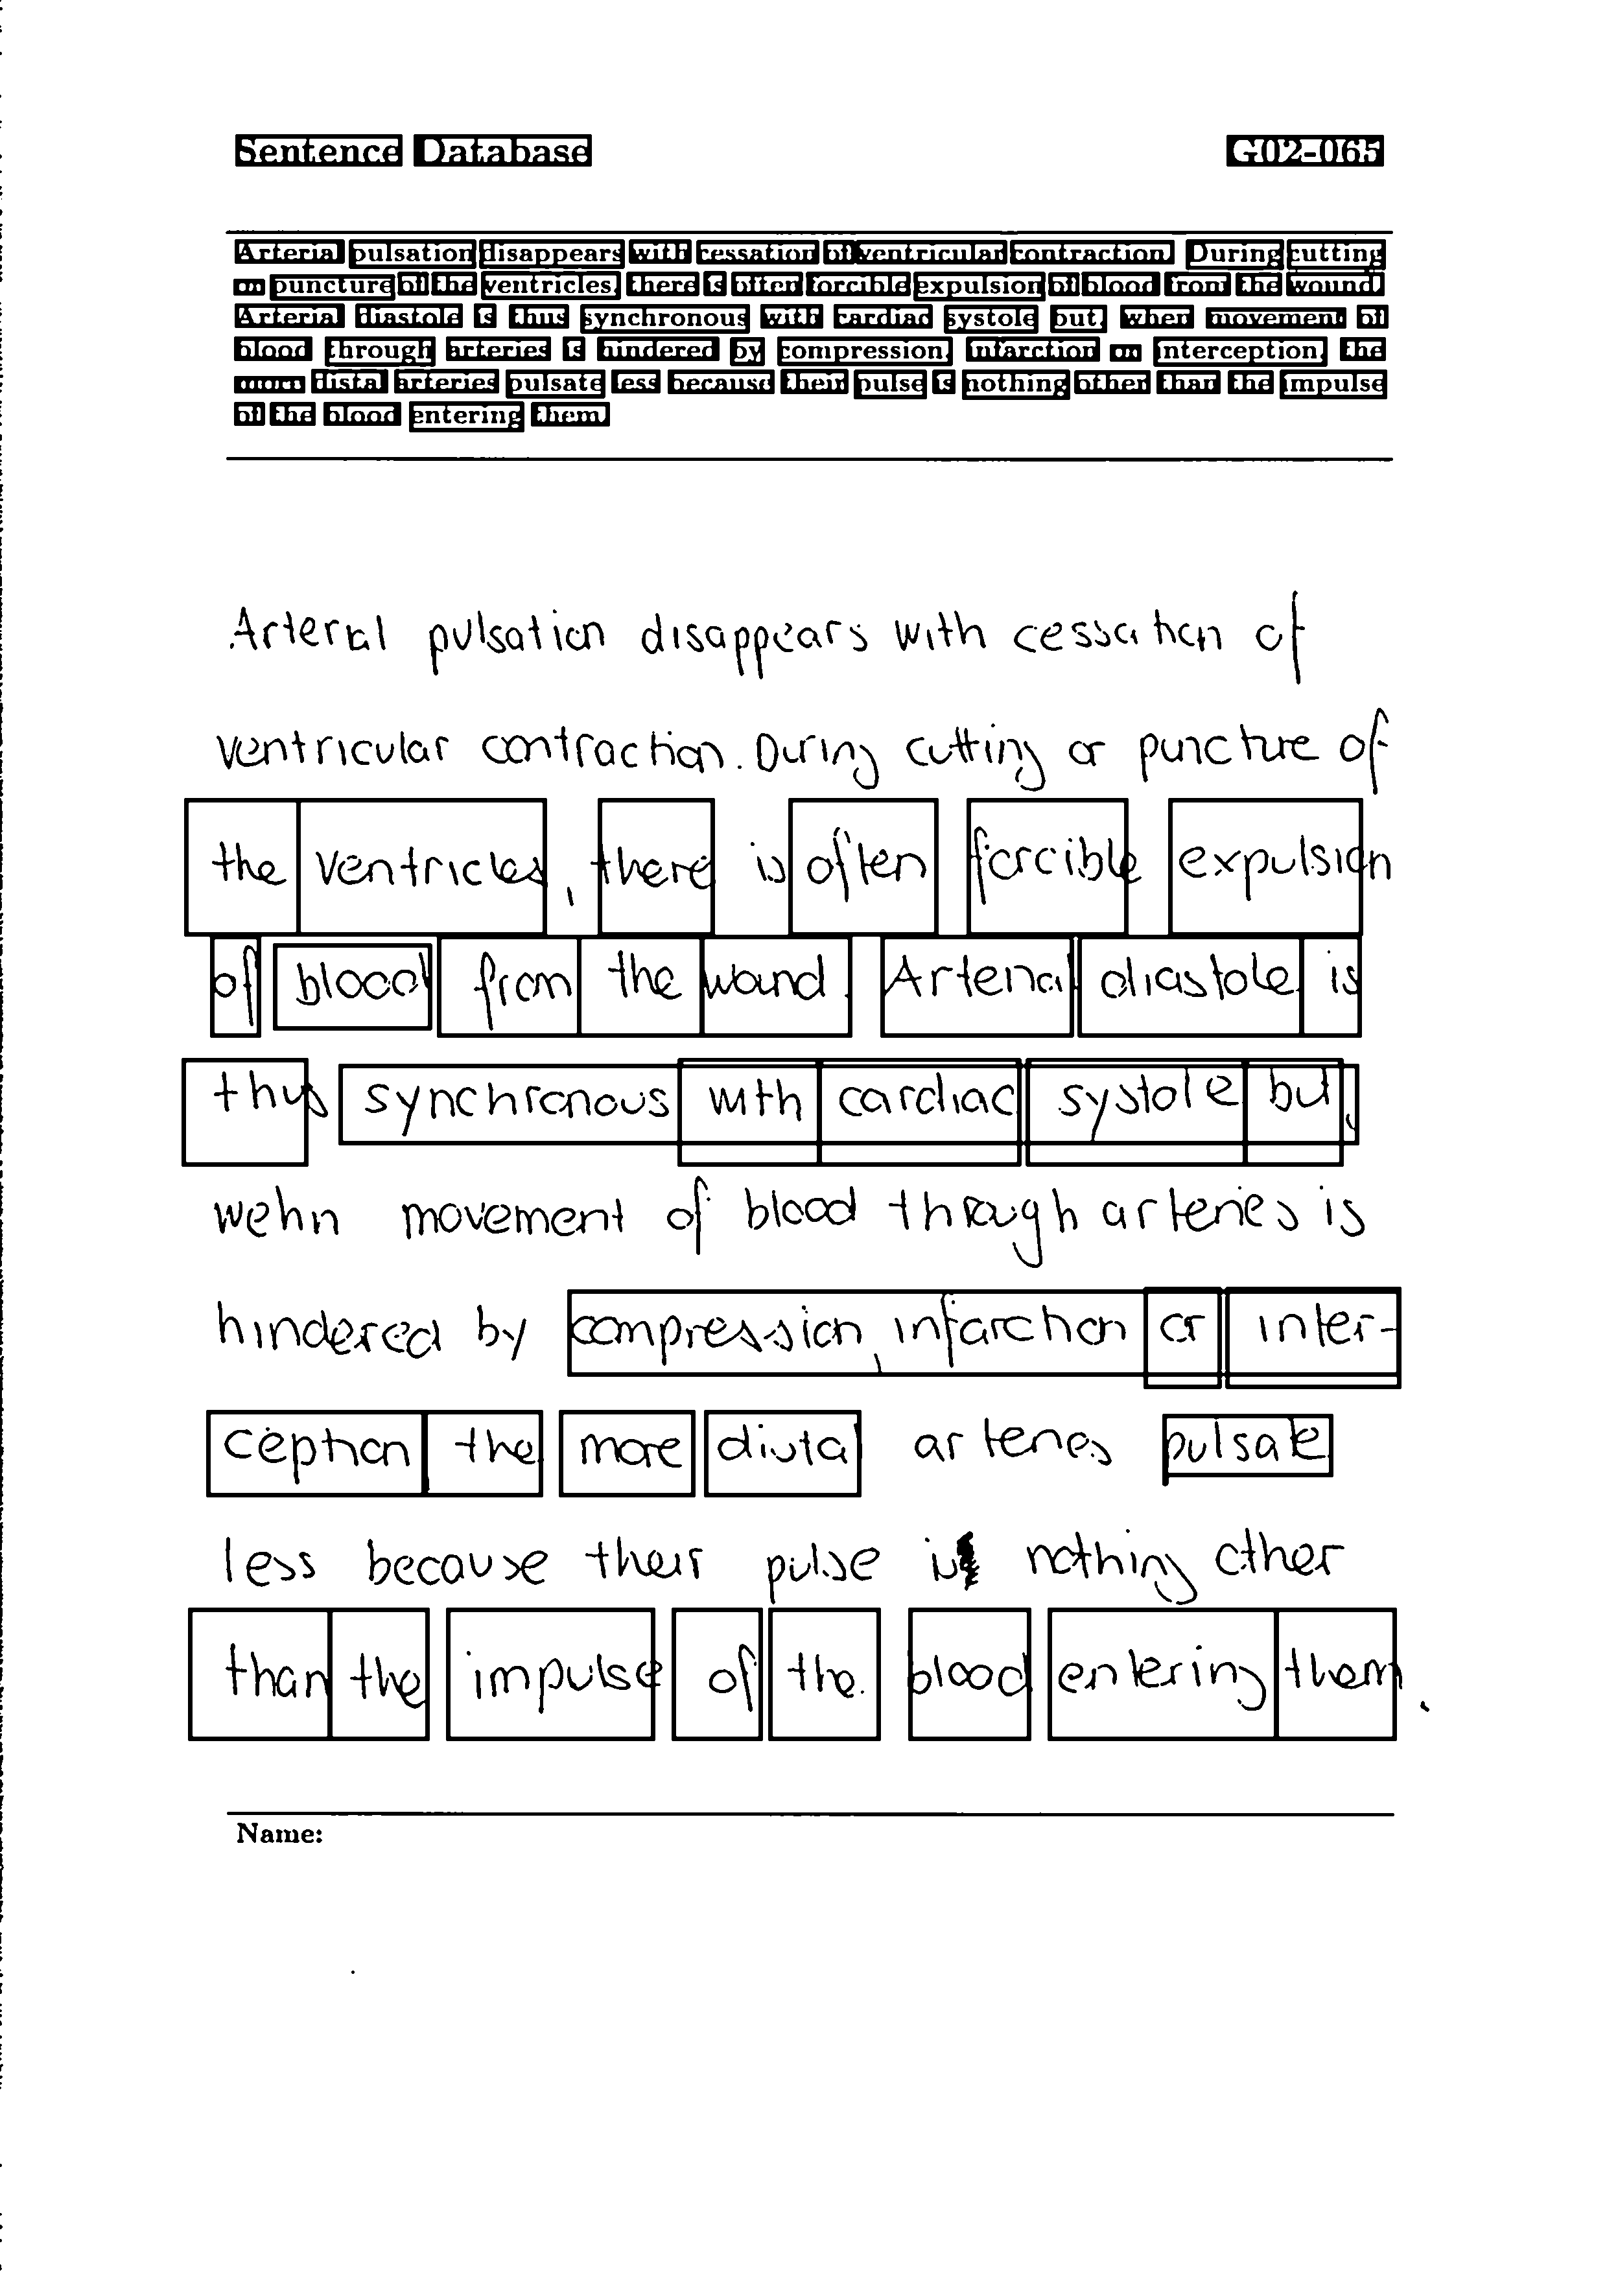 Sentence Database G02-065
Arterial pulsation disappears with cessation of ventricular contraction. During cutting
or puncture of the ventricles, there is often forcible expulsion of blood from the wound.
Arterial diastole is thus synchronous with cardiac systole but, when movement of
blood through arteries is hindered by compression, infarction or interception, the
more distal arteries pulsate less because their pulse is nothing other than the impulse
of the blood entering them.
Arterial pulsation disappears with cessation of
ventricular contraction. During cutting or puncture of
the ventricles, there is often forcible expulsion
of blood from the wound. Arterial diastole is
thus synchronous with cardiac systole but,
wehn movement of blood through arteries is
hindered by compression, infarction or inter-
ception the more distal arteries pulsate
less because their pulse is nothing other
than the impulse of the blood entering them.
Name: